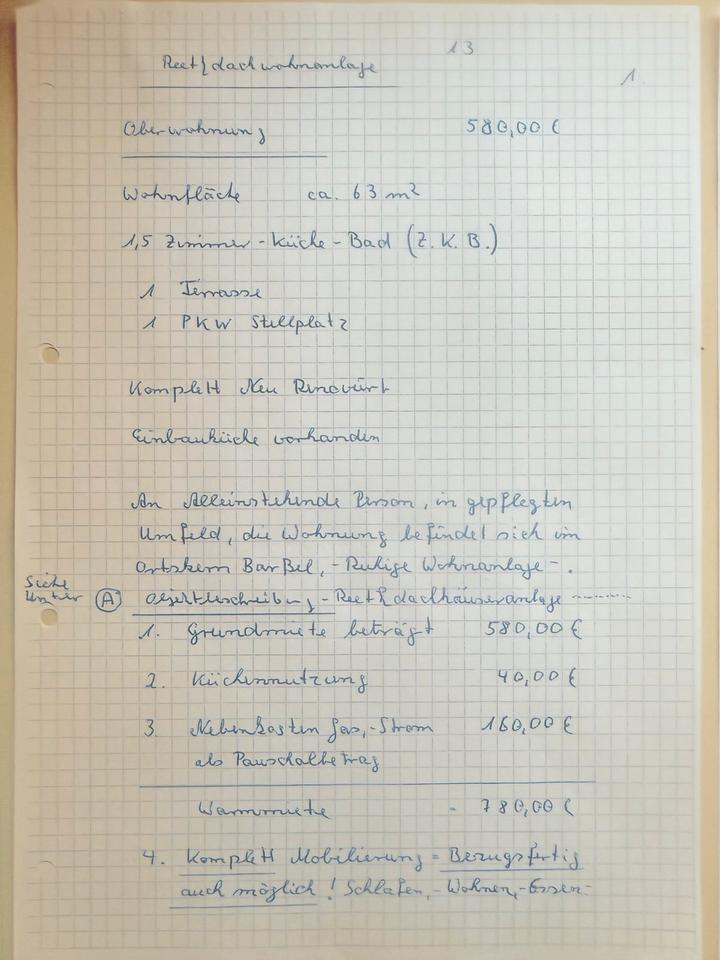 13
1.
Reetdachwohnanlage
Oberwohnung 580,00 €
Wohnfläche ca. 63 m²
1,5 Zimmer - Küche - Bad (Z. K. B.)
1 Terrasse
1 PKW Stellplatz
Komplett Neu Renoviert
Einbauküche vorhanden
An Alleinstehende Person, in gepflegten
Umfeld, die Wohnung befindet sich im
Ortskern Barßel, - Ruhige Wohnanlage -.
Siehe
Unter (A) Objektbeschreibung - Reetdachhäuseranlage ---------
1. Grundmiete beträgt 580,00 €
2. Küchennutzung 40,00 €
3. Nebenkosten Gas, - Strom 160,00 €
als Pauschalbetrag
Warmmiete - 780,00 €
4. Komplett Mobilierung = Bezugsfertig
auch möglich! Schlafen, - Wohnen, - Essen -